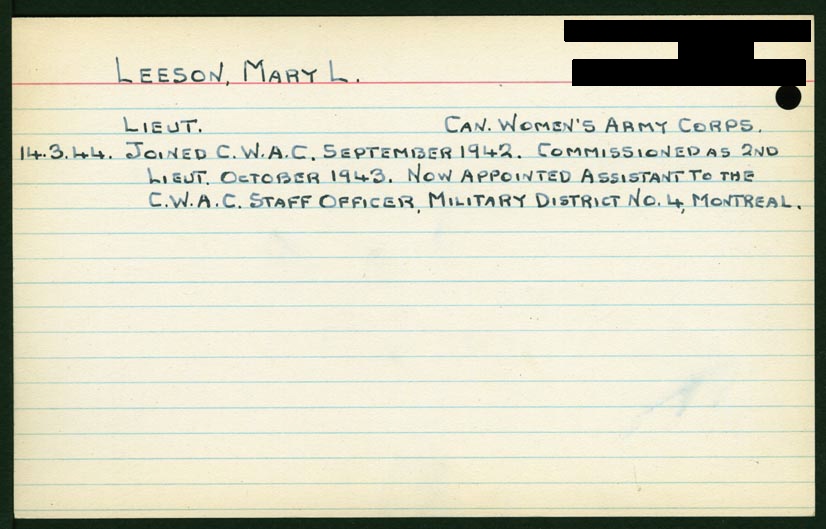 LEESON, MARY L.
LIEUT. CAN. WOMEN'S ARMY CORPS.
14.3.44. JOINED C.W.A.C. SEPTEMBER 1942. COMMISSIONED AS 2ND
LIEUT. OCTOBER 1943. NOW APPOINTED ASSISTANT TO THE
C.W.A.C. STAFF OFFICER, MILITARY DISTRICT NO. 4, MONTREAL.